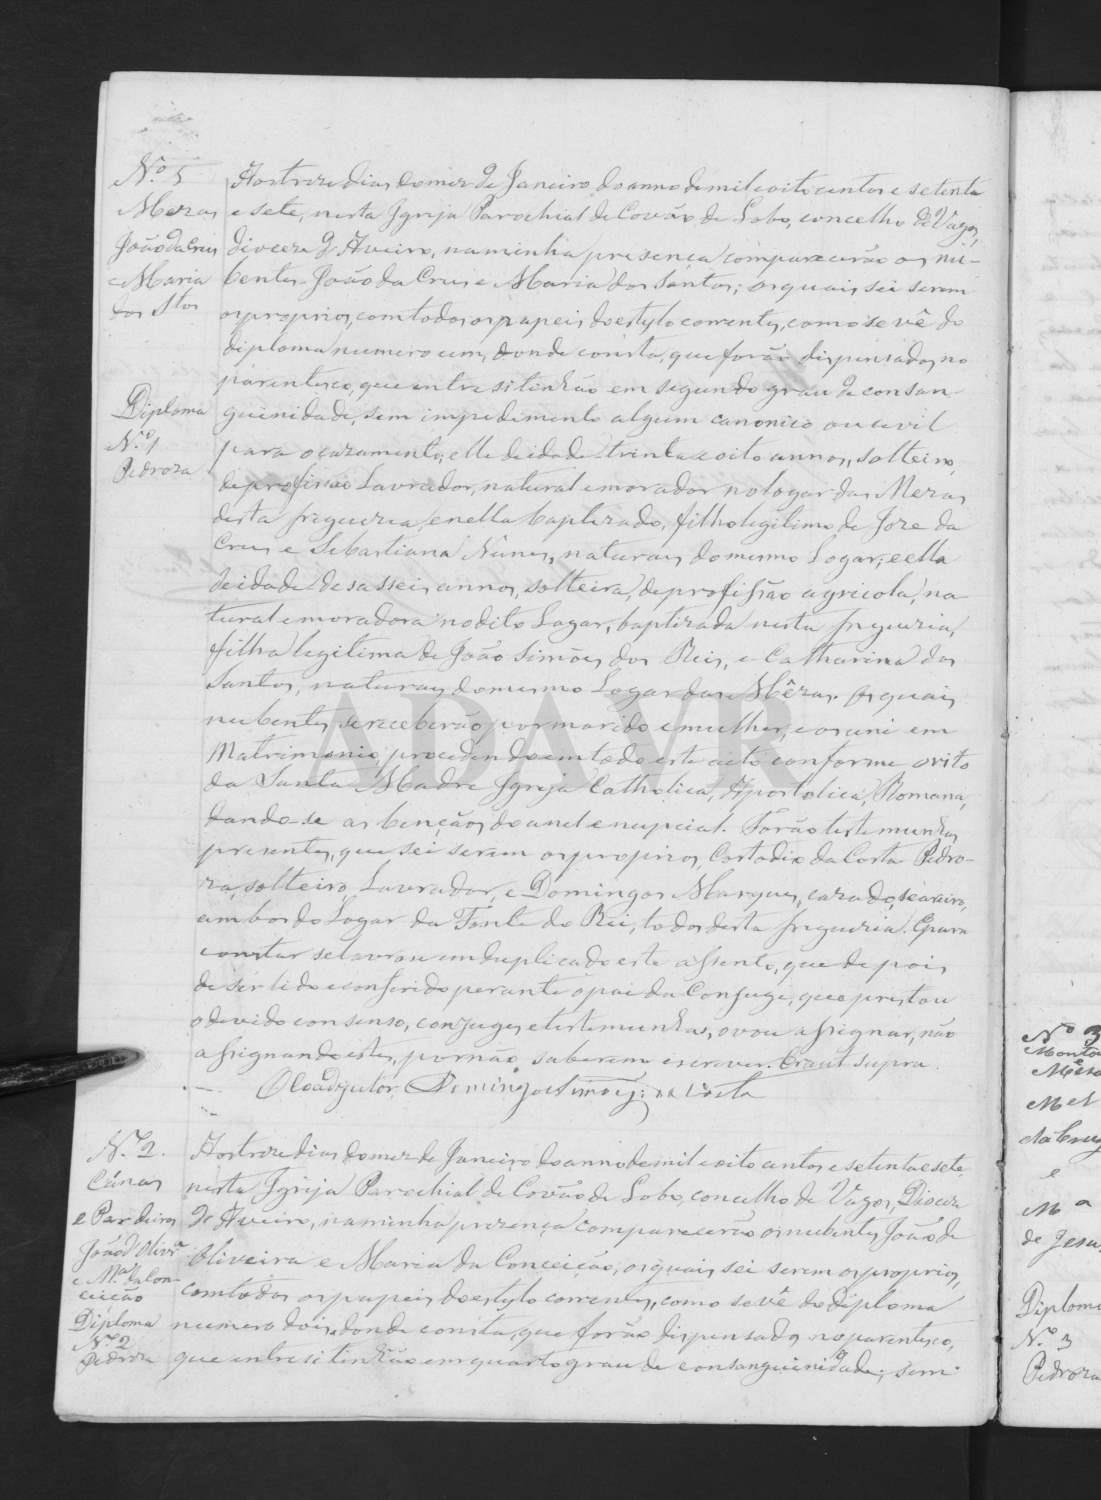 N.º 5
Mezas
João da Cruz
e Maria
dos Stos
Diploma
N.º 1
Pedroza
Aos treze dias do mez de Janeiro do anno de mil e oito centos e setenta
e sete, nesta Igreja Parochial de Covão do Lobo, concelho de Vagos,
dioceze d'Aveiro, na minha presença comparecerão os nu-
bentes João da Cruz e Maria dos Santos; os quais sei serem
os proprios, com todos os papeis do estylo correntes, como se vê do
diploma numero um, donde consta, que forão dispensados no
parentesco, que entre si tinhão em segundo grau de consan-
guinidade, sem impedimento algum canonico ou civil
para o cazamento; elle de idade trinta e oito annos, solteiro,
de profissão Lavrador, natural e morador no logar das Mezas
desta freguezia, e nella baptizado, filho legitimo de Joze da
Cruz e Sebastiana Nunes, naturaes do mesmo Logar; e ella
de idade desasseis annos, solteira, de profissão agricola, na-
tural e moradora no dito Lugar, baptizada nesta freguezia,
filha legitima de João Simões dos Reis, e Catharina dos
Santos, naturaes do mesmo Logar das Mêzas. Os quais
nubentes se receberão por marido e mulher, e os uni em
Matrimonio, procedendo em todo este acto conforme o rito
da Santa Madre Igreja Catholica, Apostolica, Romana,
dando-se as bençãos do anel e nupcial. Forão testemunhas
presentes, que sei serem os proprios, Custodio da Costa Pedro-
za, solteiro, Lavrador, e Domingos Marques, cazado, seareiro,
ambos do Logar da Fonte do Rei, todos desta freguezia. E para
constar se lavrou em duplicado este assento, que depois
de ser lido e conferido perante o pai da Conjuge, que prestou
o devido consenso, conjuges e testemunhas, o vou assignar, não
assignando estes, por não saberem escrever. Era ut supra.
O Coadjutor, Domingos Simões da Costa
N.º 2.
Cánas
e Pardeiros
João d'Olivrª
e Mª da Con-
ceição
Diploma
N.º 2
Pedroza
Aos treze dias do mez de Janeiro do anno de mil e oito centos e setenta e sete,
nesta Igreja Parochial de Covão do Lobo, concelho de Vagos, Dioceze
d'Aveiro, na minha prezença comparecerão os nubentes João de
Oliveira e Maria da Conceição, os quais sei serem os proprios,
com todos os papeis do estylo correntes, como se vê do diploma
numero dois, donde consta, que forão dispensados no parentesco,
que entre si tinhão em quarto grau de consanguinidade, sem
Nº 3
Mel
da Cruz
e
Mª
de Jesu
Diploma
N.º 3
Pedroza
ADAVR